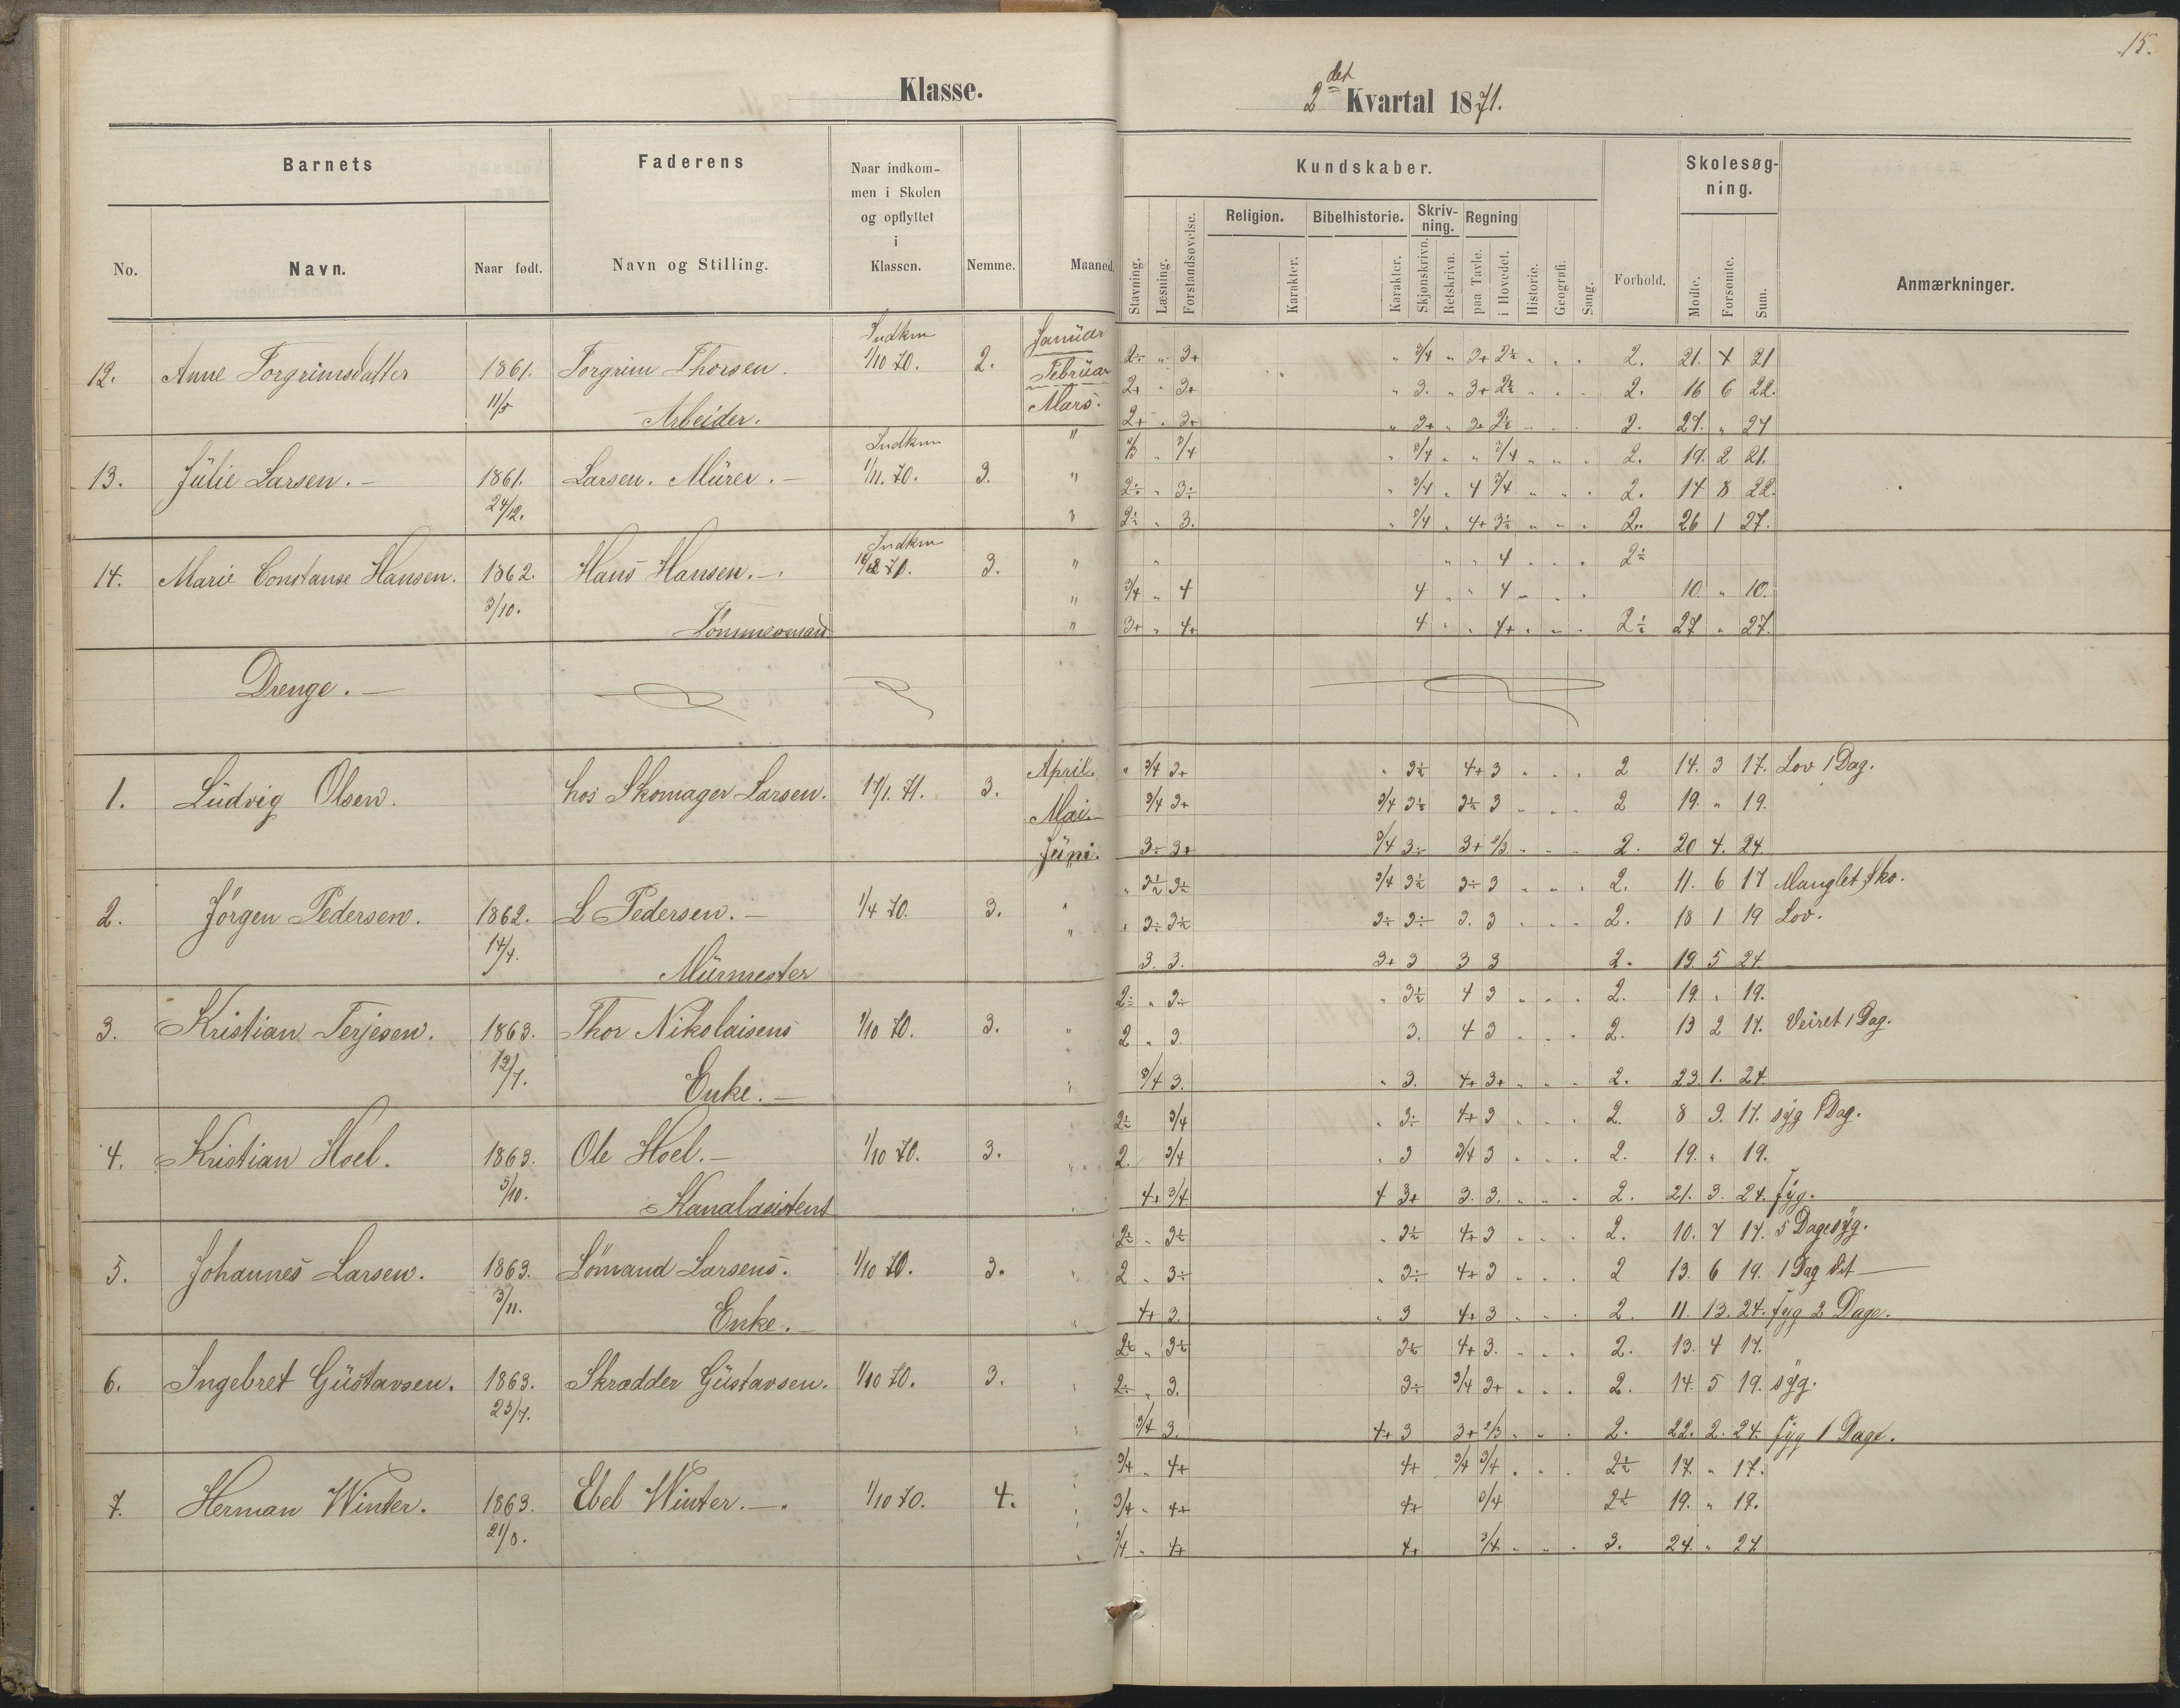 15.
Klasse.
2det Kvartal 1871.
Barnets
Faderens
Naar indkommen i Skolen og opflyttet i Klassen.
Kundskaber.
Skolesøgning.
No.
Navn.
Naar født.
Navn og Stilling.
Nemme.
Maaned.
Stavning.
Læsning.
Forstandsøvelse.
Religion.
Karakter.
Bibelhistorie.
Karakter.
Skrivning.
Skjønskrivn.
Retskrivn.
Regning
paa Tavle.
i Hovedet.
Historie.
Geografi.
Sang.
Forhold.
Mødte.
Forsømte.
Sum.
Anmærkninger.
12. Anne Torgrimsdatter 1861. 11/5 Torgrim Thorsen. Arbeider. Indkm 1/10 70. 2.
Januar 2. 21. 21
Februar 2+ " 3+ " 3. " 3+ 2. 16 6 22.
Mars. 2+ " 3+ 2. 27. " 27
13. Julie Larsen. 1861. 24/12. Larsen. Murer. Indkm 1/11. 70. 3.
" 3/4 2. 19. 2 21.
" 2÷ " 3÷ " 3/4 " 4 3/4 2. 14 8 22.
" 3. " 3/4 " 4+ 26 1 27.
14. Marie Constanse Hansen. 1862. 3/10. Hans Hansen. Indkm 3.
" 4
" 3/4 " 4 4 " " 4 10. " 10.
" 3+ " 4+ 4 " " 4+ 27 " 27.
Drenge.
1. Ludvig Olsen. hos Skomager Larsen. 17/1. 71. 3.
April. " 3/4 3+ 4+ 3 2 14. 3 17. Lov 1 Dag.
Mai. 3/4 3+ 3/4 3 2 19. " 19.
Juni. 3÷ 3+ 3/4 3÷ 3+ 2/3 2. 20 4. 24.
2. Jørgen Pedersen. 1862. 14/4. L Pedersen. Murmester 1/4 70. 3.
" 3/4 3÷ 3 2. 11. 6 17 Manglet Sko.
" 3÷ 3÷ 3÷ 3. 3 2. 18 1 19 Lov.
3. 3. 3+ 3 3 3 2. 19. 5 24.
3. Kristian Terjesen. 1863. 12/7. Thor Nikolaisens Enke. 1/10 70. 3.
2÷ " 3÷ 4 3 2. 19. " 19.
2 " 3. 3. 4 3 2. 13 2 17. Veiret 1 Dag.
3/4 3. " 3. 4+ 3+ 2. 23. 1. 24.
4. Kristian Hoel. 1863. 5/10. Ole Hoel. Kanalasistent 1/10 70. 3.
3/4 " 3÷ 4+ 3 2. 8 9. 17. syg 1 Dag.
2. 3/4 " 3 3/4 3 2. 19. " 19.
4+ 3/4 4 3+ 3. 3. 2. 21. 3. 24. Syg.
5. Johannes Larsen. 1863. 3/11. Sömand Larsens. Enke. 1/10 70. 3.
4+ 3 2. 10. 7 17. 5 Dage syg.
2 " 3÷ " 3÷ 4+ 3 2 13. 6 19. 1 Dag
4+ 3. " 3 4+ 3 2. 11. 13. 24. Syg 2 Dage.
6. Ingebret Gustavsen. 1863. 23/7. Skrædder Gustavsen. 1/10 70. 3.
4+ 3. 2. 13. 4 17.
2÷ " 3. 3÷ 3/4 3+ 2. 14. 5 19. syg.
3/4 3. 4+ 3 3+ 2/3 2. 22. 2. 24. Syg 1 Dage.
7. Herman Winter. 1863. 21/8. Ebel Winter. 1/10 70. 4.
3/4 " 4+ 4+ 3/4 3/4 17. " 17.
3/4 " 4+ 4+ 3/4 19. " 19.
3/4 " 4+ 4+ 3/4 3. 24. " 24